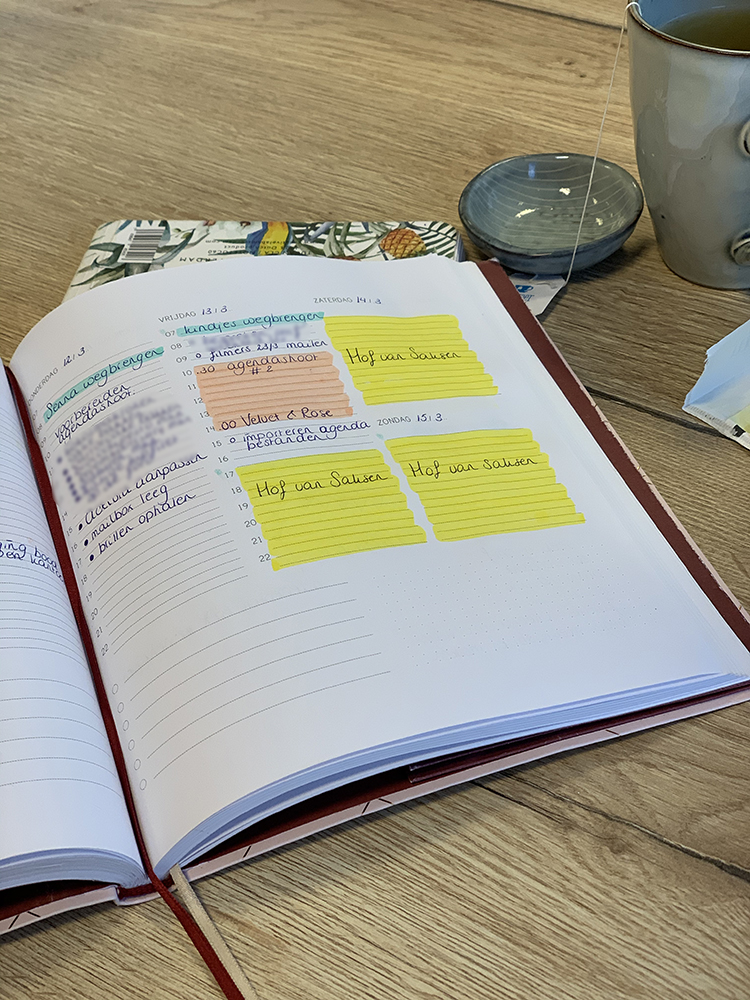 DONDERDAG 12|3.
Senna wegbrengen
voorbereiden
agendashoot.
aanpassen
16 • mailbox leeg
17 • brillen ophalen
18
19
20
21
22
VRIJDAG 13|3.
07 kindjes wegbrengen
08
09 o filmers 23/3 mailen
10 .30 agendashoot
11 # 2
12
13
14 .00 Velvet & Rose
15 o importeren agenda
16 bestanden
17
18 Hof van Saksen
19
20
21
22
ZATERDAG 14|3
Hof van Saksen
ZONDAG 15|3.
Hof van Saksen